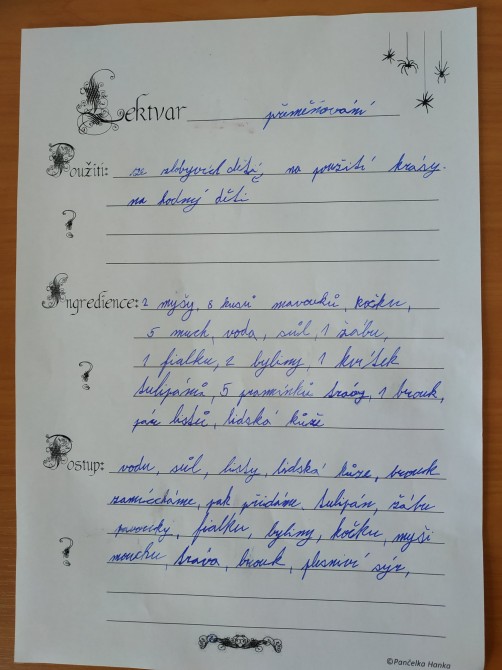 Lektvar přeměňování
Použití: ze zlobyvích dětí, na použití krásy.
na hodný děti
?
Ingredience: 2 myšy, 6 kusů mavouků, kočku,
5 much, voda, sůl, 1 žábu,
1 fialku, 2 byliny, 1 kvítek
? tulipánů, 5 pramínků trávy, 1 brouk,
pár listů, lidská kůže
Postup: vodu, sůl, listy, lidská kůze, brouk
zamícháme, pak přidáme. tulipán, žábu
pavouky, fialku, byliny, kočku, myši
? mouchu, tráva, brouk, plesniví sýr,
©Pančelka Hanka